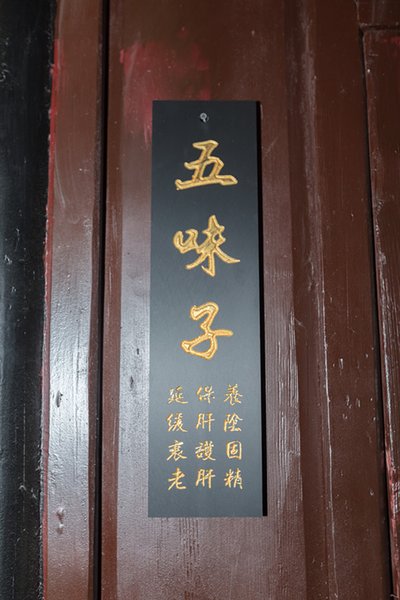 五味子
養陰固精
保肝護肝
延缓衰老